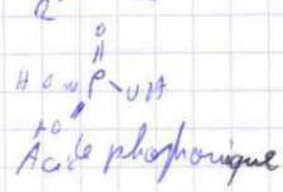 O
HO P OH
HO
Acide phosphorique